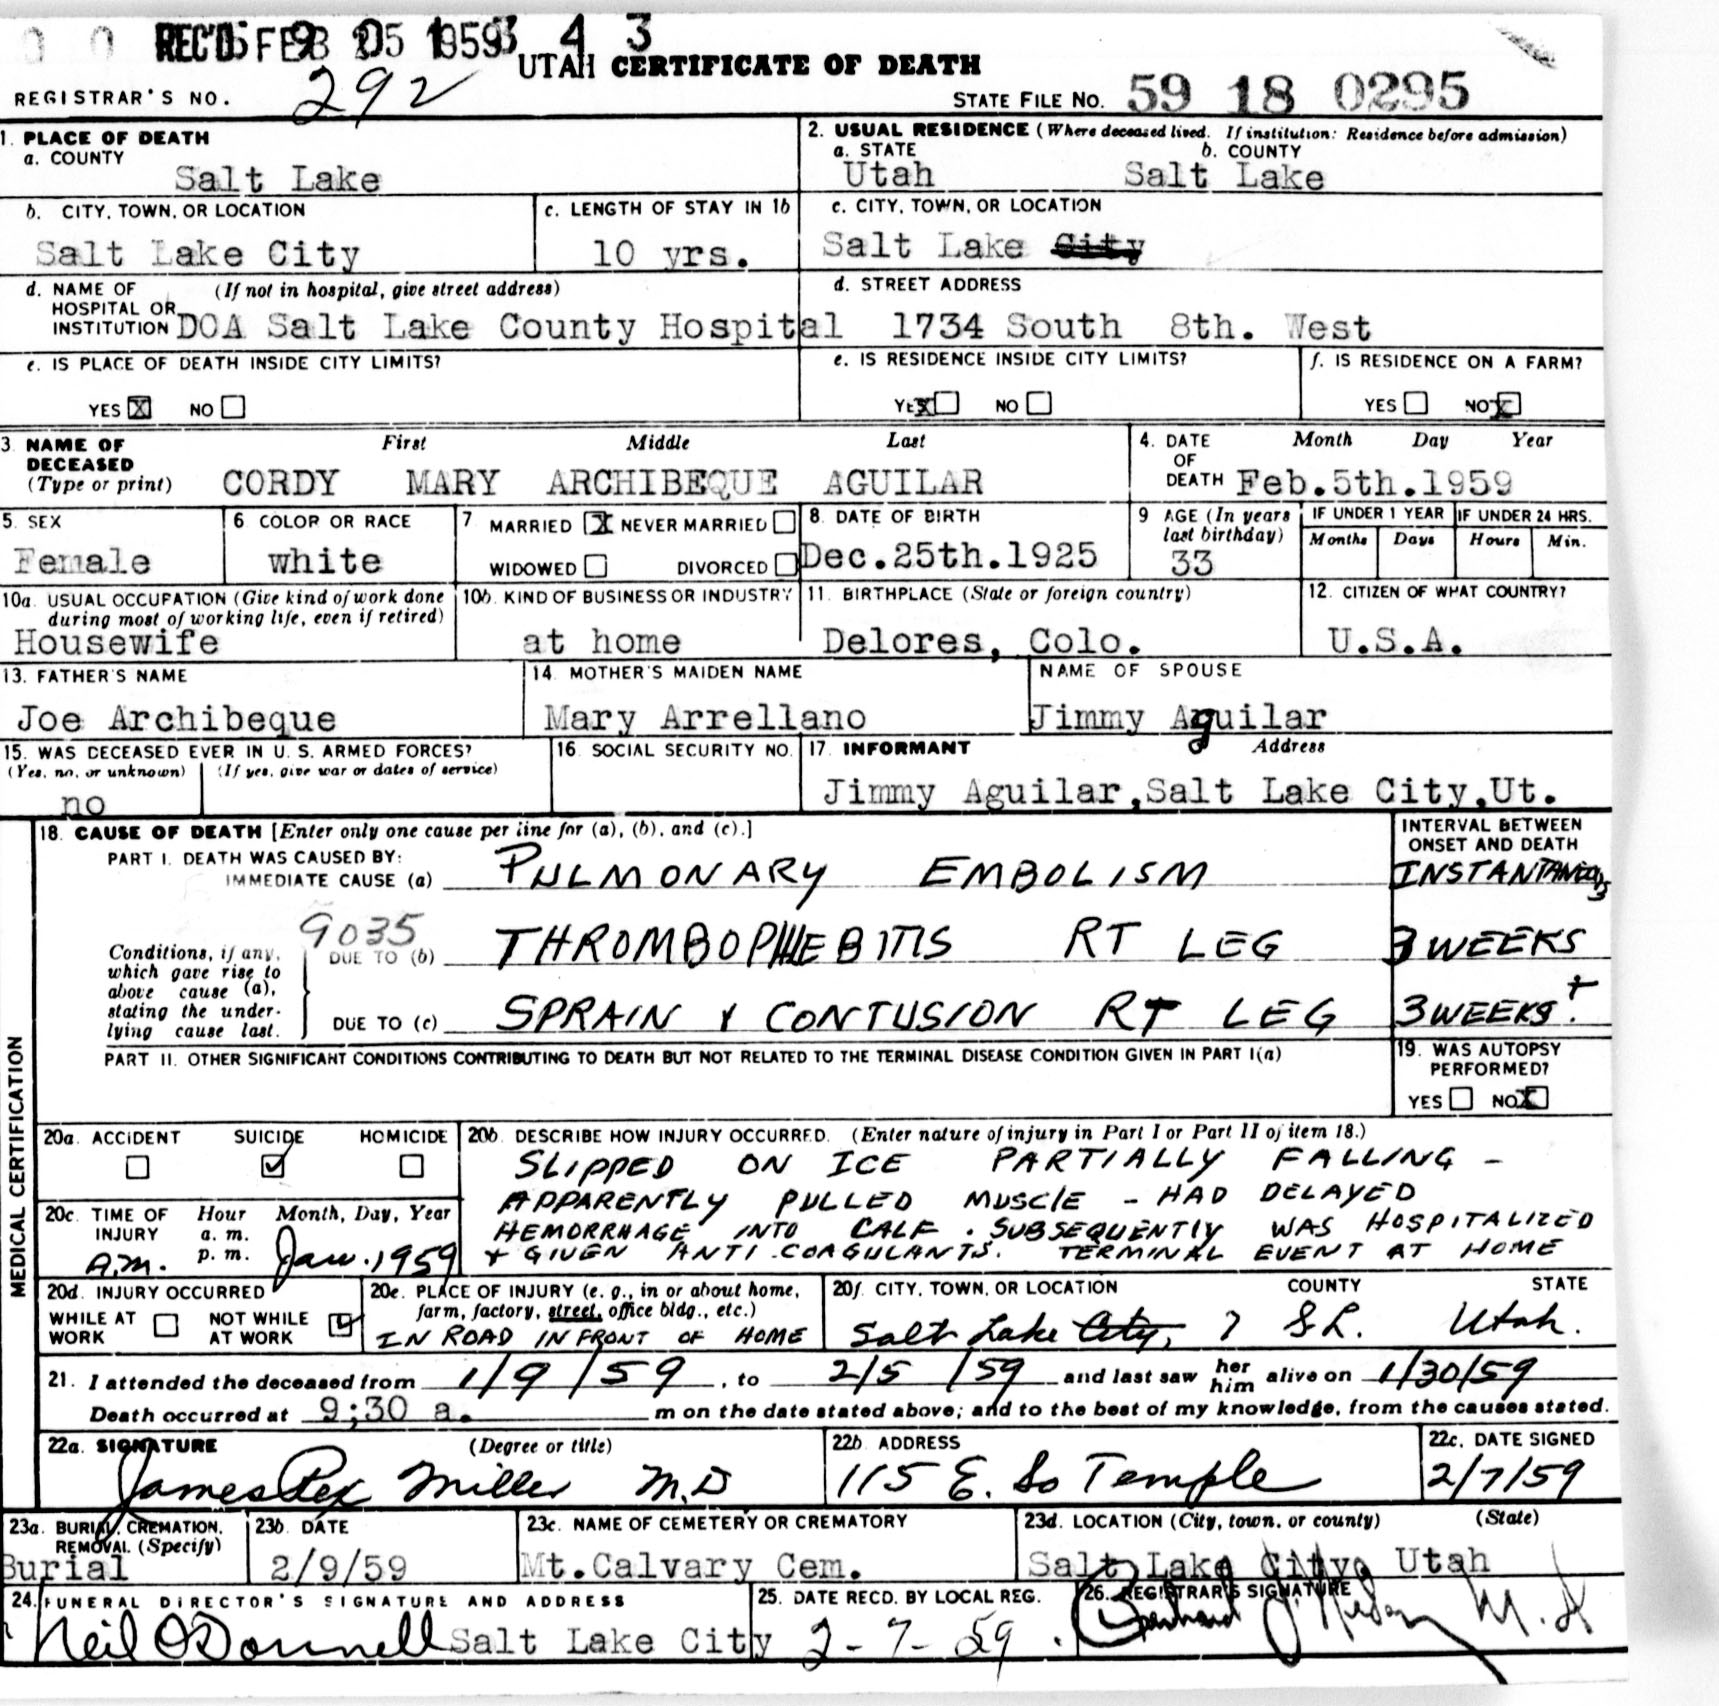 REC'D FEB 05 1959 3 4 3
UTAH CERTIFICATE OF DEATH
REGISTRAR'S NO. 292
STATE FILE NO. 59 18 0295
1. PLACE OF DEATH
a. COUNTY
Salt Lake
2. USUAL RESIDENCE (Where deceased lived. If institution: Residence before admission)
a. STATE b. COUNTY
Utah Salt Lake
b. CITY, TOWN, OR LOCATION
Salt Lake City
c. LENGTH OF STAY IN 1b
10 yrs.
c. CITY, TOWN, OR LOCATION
Salt Lake City
d. NAME OF (If not in hospital, give street address)
HOSPITAL OR
INSTITUTION DOA Salt Lake County Hospital
d. STREET ADDRESS
1734 South 8th. West
e. IS PLACE OF DEATH INSIDE CITY LIMITS?
YES X NO
e. IS RESIDENCE INSIDE CITY LIMITS?
YES X NO
f. IS RESIDENCE ON A FARM?
YES NO X
3 NAME OF First Middle Last
DECEASED
(Type or print) CORDY MARY ARCHIBEQUE AGUILAR
4. DATE Month Day Year
OF
DEATH Feb.5th.1959
5. SEX
Female
6 COLOR OR RACE
white
7 MARRIED X NEVER MARRIED
WIDOWED DIVORCED
8. DATE OF BIRTH
Dec.25th.1925
9 AGE (In years
last birthday)
33
IF UNDER 1 YEAR IF UNDER 24 HRS.
Months Days Hours Min.
10a. USUAL OCCUPATION (Give kind of work done
during most of working life, even if retired)
Housewife
10b. KIND OF BUSINESS OR INDUSTRY
at home
11. BIRTHPLACE (State or foreign country)
Delores, Colo.
12. CITIZEN OF WHAT COUNTRY?
U.S.A.
13. FATHER'S NAME
Joe Archibeque
14. MOTHER'S MAIDEN NAME
Mary Arrellano
NAME OF SPOUSE
Jimmy Aguilar
15. WAS DECEASED EVER IN U. S. ARMED FORCES?
(Yes, no, or unknown) (If yes, give war or dates of service)
no
16. SOCIAL SECURITY NO.
17. INFORMANT Address
Jimmy Aguilar,Salt Lake City,Ut.
MEDICAL CERTIFICATION
18. CAUSE OF DEATH [Enter only one cause per line for (a), (b), and (c).]
INTERVAL BETWEEN
ONSET AND DEATH
PART I. DEATH WAS CAUSED BY:
IMMEDIATE CAUSE (a) PULMONARY EMBOLISM INSTANTANEOUS
9035
Conditions, if any,
which gave rise to
above cause (a),
stating the under-
lying cause last.
DUE TO (b) THROMBOPHLEBITIS RT LEG 3 WEEKS
DUE TO (c) SPRAIN & CONTUSION RT LEG 3 WEEKS +.
PART II. OTHER SIGNIFICANT CONDITIONS CONTRIBUTING TO DEATH BUT NOT RELATED TO THE TERMINAL DISEASE CONDITION GIVEN IN PART I(a)
19. WAS AUTOPSY
PERFORMED?
YES NO X
20a. ACCIDENT SUICIDE HOMICIDE
20b. DESCRIBE HOW INJURY OCCURRED. (Enter nature of injury in Part I or Part II of item 18.)
SLIPPED ON ICE PARTIALLY FALLING -
APPARENTLY PULLED MUSCLE - HAD DELAYED
HEMORRHAGE INTO CALF. SUBSEQUENTLY WAS HOSPITALIZED
+ GIVEN ANTI-COAGULANTS. TERMINAL EVENT AT HOME
20c. TIME OF Hour Month, Day, Year
INJURY a. m.
A.M. p. m. Jan. 1959
20d. INJURY OCCURRED
WHILE AT NOT WHILE
WORK AT WORK
20e. PLACE OF INJURY (e. g., in or about home,
farm, factory, street, office bldg., etc.)
IN ROAD IN FRONT OF HOME
20f. CITY, TOWN, OR LOCATION COUNTY STATE
Salt Lake City, 7 S.L. Utah.
21. I attended the deceased from 1/9/59, to 2/5/59 and last saw her him alive on 1/30/59
Death occurred at 9;30 a. m on the date stated above; and to the best of my knowledge, from the causes stated.
22a. SIGNATURE (Degree or title)
James Rex Miller M.D
22b. ADDRESS
115 E. So Temple
22c. DATE SIGNED
2/7/59
23a. BURIAL, CREMATION,
REMOVAL (Specify)
Burial
23b. DATE
2/9/59
23c. NAME OF CEMETERY OR CREMATORY
Mt.Calvary Cem.
23d. LOCATION (City, town, or county) (State)
Salt Lake City, Utah
24. FUNERAL DIRECTOR'S SIGNATURE AND ADDRESS
Neil O'Donnell Salt Lake City
25. DATE RECD. BY LOCAL REG.
2-7-59.
26. REGISTRAR'S SIGNATURE
M.D